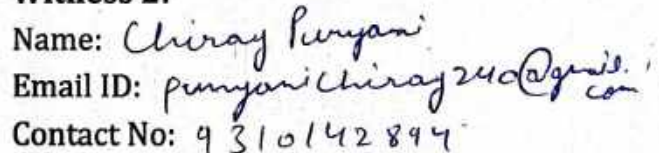 Witness 2:
Name: Chirag Punyani
Email ID: punyanichirag240@gmail.com
Contact No: 9310142894